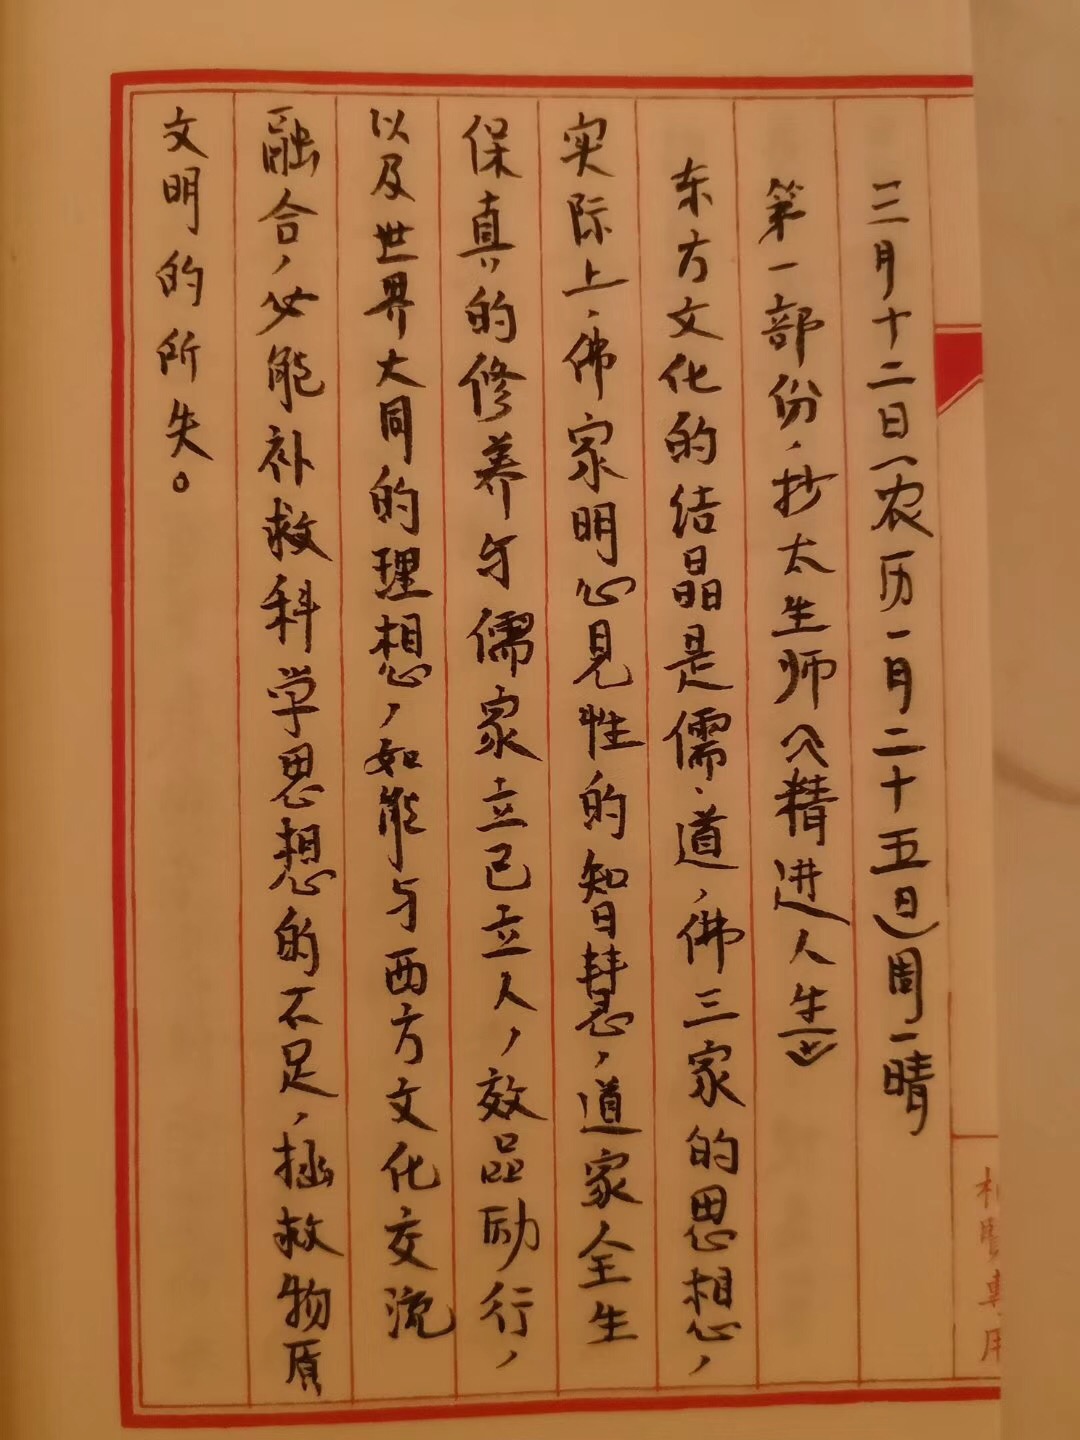 三月十二日（农历一月二十五日）周一晴
第一部份、抄太生师《精进人生》
东方文化的结晶是儒、道、佛三家的思想，
实际上、佛家明心见性的智慧，道家全生
保真的修养与儒家立己立人，效品励行，
以及世界大同的理想，如能与西方文化交流
融合，必能补救科学思想的不足，拯救物质
文明的所失。
專用